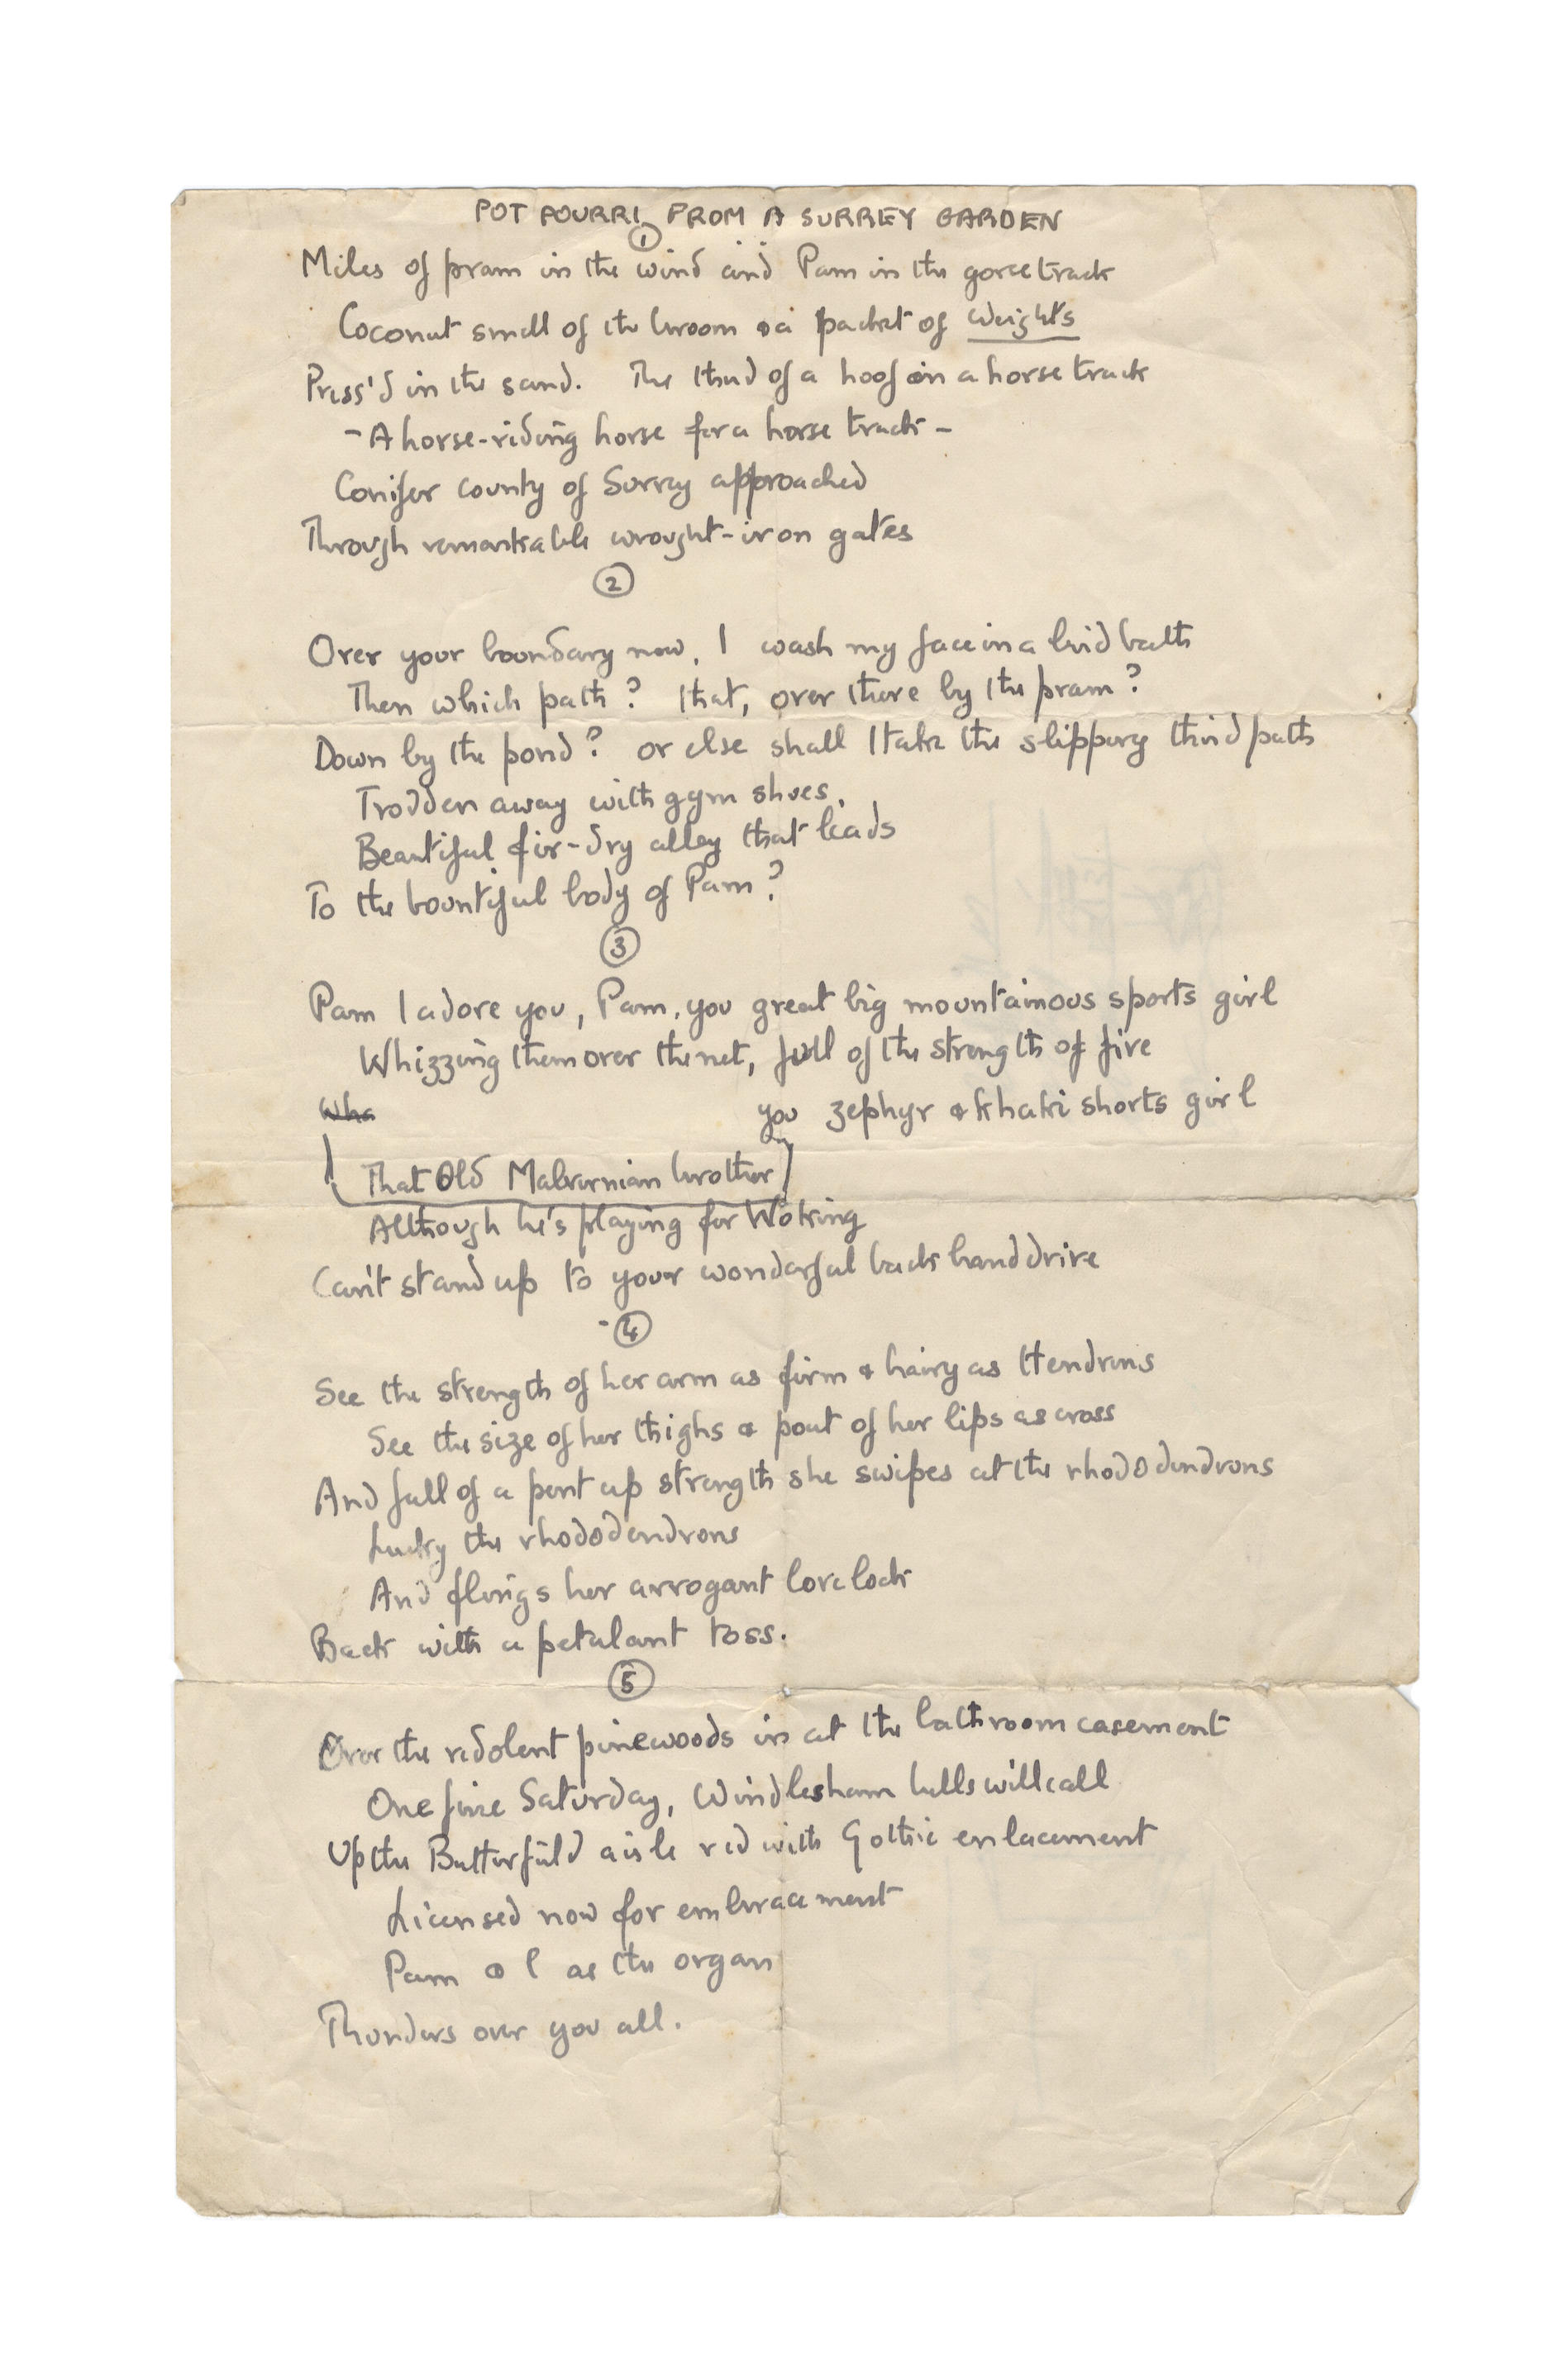 POT POURRI FROM A SURREY GARDEN
①
Miles of pram in the wind and Pam in the gorse track
Coconut smell of the broom & a packet of Weights
Press'd in the sand. The thud of a hoof on a horse track
- A horse-riding horse for a horse track -
Conifer county of Surrey approached
Through remarkable wrought-iron gates
②
Over your boundary now, I wash my face in a bird bath
Then which path? that, over there by the pram?
Down by the pond? or else shall I take the slippery third path
Trodden away with gym shoes,
Beautiful fir-dry alley that leads
To the bountiful body of Pam?
③
Pam I adore you, Pam, you great big mountainous sports girl
Whizzing them over the net, full of the strength of five
Who
you zephyr & khaki shorts girl
That Old Malvernian brother
Although he's playing for Woking
Can't stand up to your wonderful back hand drive
④
See the strength of her arm as firm & hairy as Htendrens
See the size of her thighs & pout of her lips as cross
And full of a pent up strength she swipes at the rhododendrons
Lucky the rhododendrons
And flings her arrogant love lock
Back with a petalant toss.
⑤
Over the redolent pinewoods in at the bathroom casement
One fine Saturday, Windlesham bells will call
Up the Butterfield aisle red with Gothic enlacement
Licensed now for embracement
Pam & I as the organ
Thunders over you all.